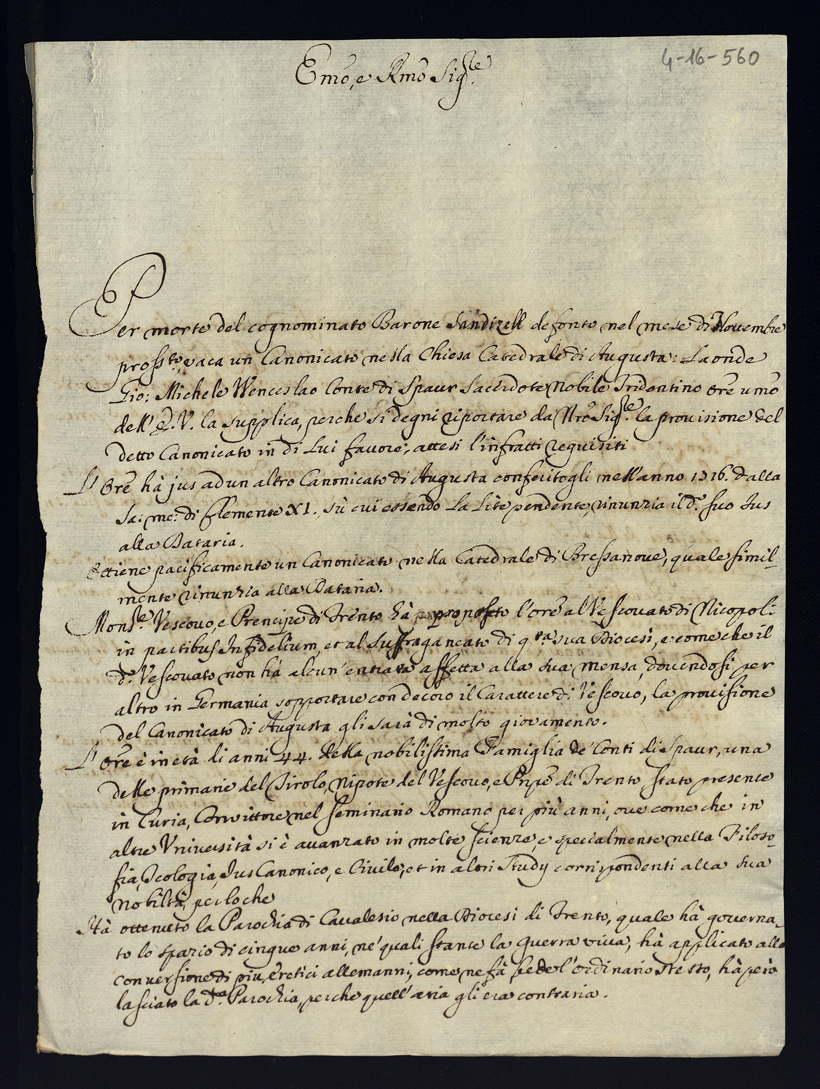 4-16-560
Emo, e Rmo Sigre
Per morte del cognominato Barone Sandizell defonto nel mese di Novembre
prossto, vaca un Canonicato nella Chiesa Catedrale di Augusta: Laonde
Gio: Michele Wenceslao Conte di Spaur Sacerdote, Nobile Tridentino Ore umo
dell'E.V. la supplica, perche si degni riportare da Nro Sigre la provisione del
detto Canonicato in di Lui favore, attesi l'infratti requisiti
L'Ore hà jus ad un altro Canonicato di Augusta conferitogli nell'anno 1716. dalla
Sa: me: di Clemente XI., sù cui essendo La Lite pendente, rinunzia il do suo Jus
alla Dataria.
Ottiene pacificamente un Canonicato nella Catedrale di Bressanone, quale simil-
mente rinunzia alla Dataria.
Monsre Vescovo, e Prencipe di Trento hà proposto l'Ore al Vescovato di Nicopoli
in partibus Infidelium, et al Suffraganeato di qta sua Diocesi, e come che il
do Vescovato non hà alcun'entrata affetta alla sua mensa, dovendosi per
altro in Germania sopportare con decoro il Carattere di Vescovo, la provisione
del Canonicato di Augusta gli sarà di molto giovamento.
L'Ore è in età di anni 44. della nobilissima Famiglia de' Conti di Spaur, una
delle primarie del Tirolo, Nipote del Vescovo, e Prpe di Trento stato presente
in Curia, Convittore nel Seminario Romano per più anni, ove come che in
altre Vniversità si è avanzato in molte scienze, e specialmente nella Filoso-
fia, Teologia, Jus Canonico, e Civile, et in altri Study corrispondenti alla sua
Nobiltà, per lo che
Hà ottenuto la Parochia di Cavalesio nella Diocesi di Trento, quale hà governa-
to lo spazio di cinque anni, ne' quali stante la guerra viva, hà applicato alla
conversione di più Eretici allemanni, come ne fà fede l'Ordinario stesso, hà però
lasciato la da Parochia, perche quell'aria gli era contraria.